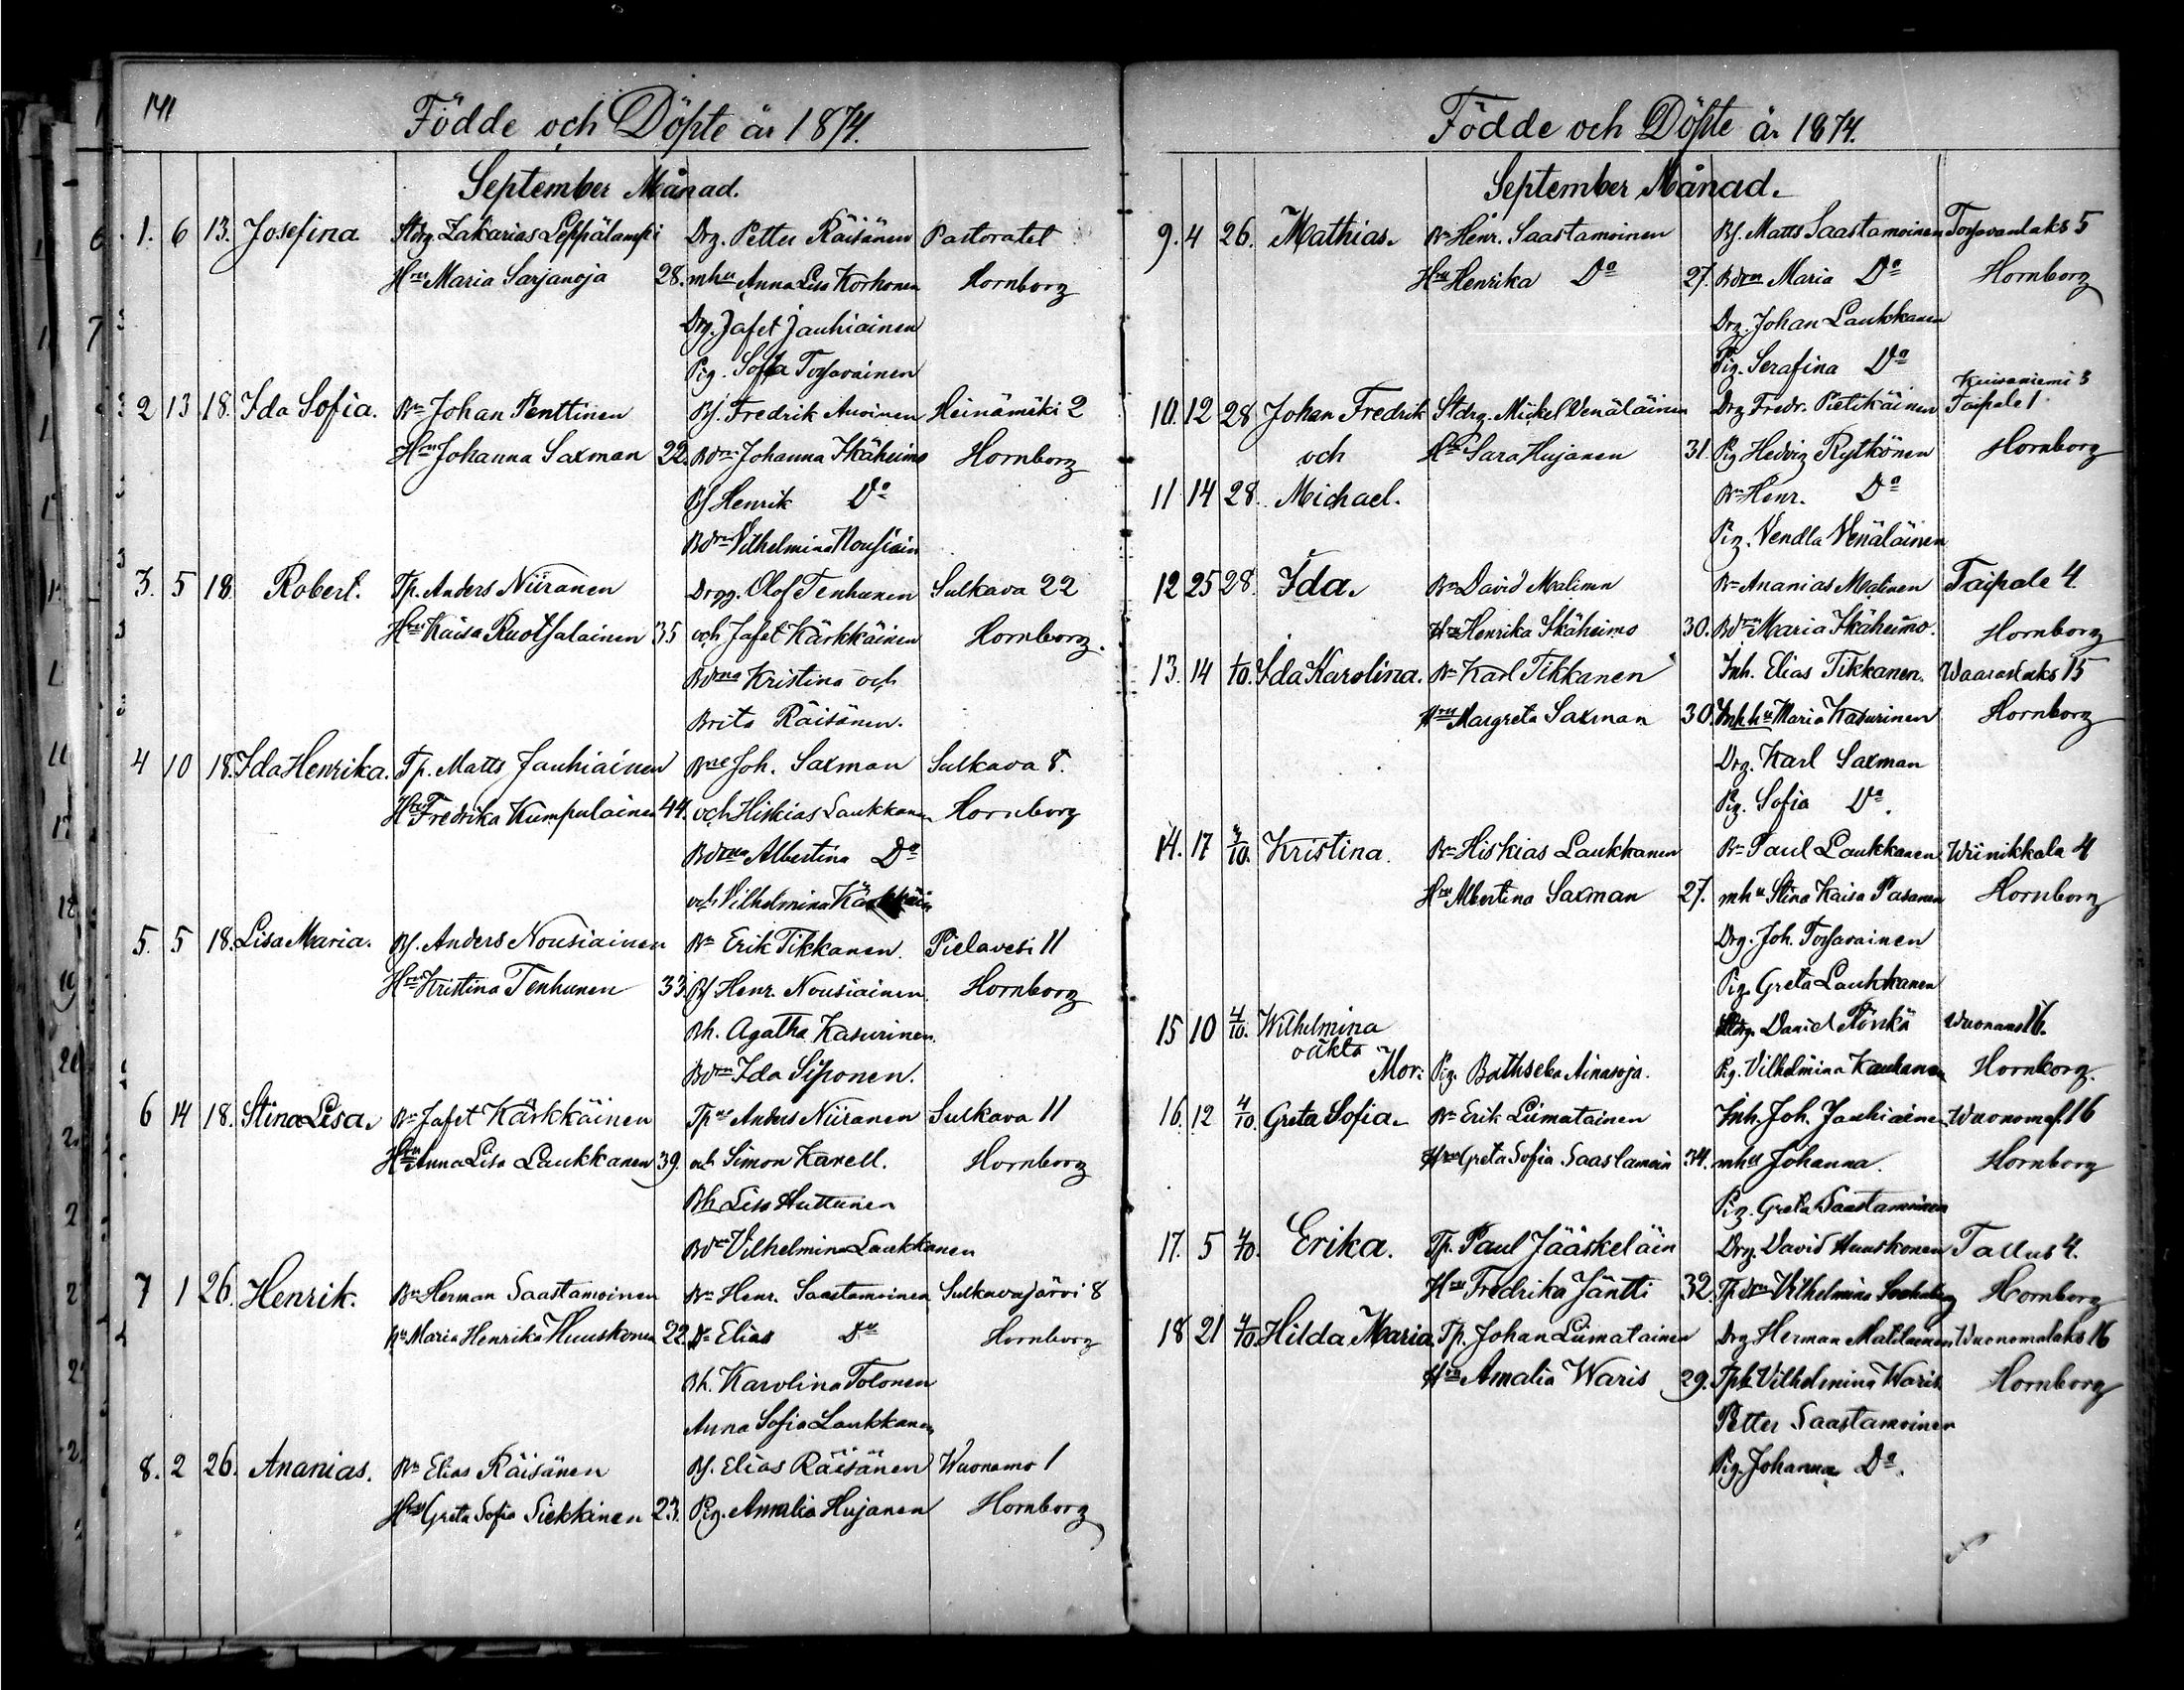 141
Födde och Döpte år 1874.
September Månad.
1. 6 13. Josefina Stdrg. Zakarias Leppälampi Drg. Petter Räisänen Pastoratet
Hru Maria Sarjanoja 28. mhu Anna Lisa Korhonen Hornborg
Drg. Jafet Jauhiainen
Pig. Sofia Torvavainen
2 13 18. Ida Sofia. Bn Johan Penttinen Bs. Fredrik Auvinen Heinämäki 2
Hru Johanna Saxman 22. Bdrn Johanna Skäheimo Hornborg
Bs Henrik Do
Bdrn Vilhelmina Nousiain
3. 5 18. Robert. Tp. Anders Niiranen Drgg. Olof Tenhunen Sulkava 22
Hru Kaisa Ruotsalainen 35 och Jafet Kärkkäinen Hornborg.
Bdrna Kristina och
Brita Räisänen.
4 10 18. Ida Henrika. Tp. Matts Jauhiainen Bne Joh. Saxman Sulkava 8.
Hru Fredrika Kumpulainen 44. och Hiskias Laukkanen Hornborg
Bdrna Albertina Do
och Vilhelmina
5. 5 18. Lisa Maria. Bs. Anders Nousiainen Bn Erik Tikkanen. Pielavesi 11
Hru Kristina Tenhunen 33. Bs Henr. Nousiainen. Hornborg
Bh. Agatha Kasurinen.
Bdrn Ida Siponen.
6 14 18. Stina Lisa. Bn Jafet Kärkkäinen Tpne Anders Niiranen Sulkava 11
Hru Anna Lisa Laukkanen 39. och Simon Karell. Hornborg
Bh Lisa Huttunen
Bdrn Vilhelmina Laukkanen
7 1 26. Henrik. Bn Herman Saastamoinen Bn Henr. Saastamoinen Sulkavajärvi 8
Hu Maria Henrika Huuskonen 22. Do Elias Do Hornborg
Bh. Karolina Tolonen
Anna Sofia Laukkanen
8. 2 26. Ananias. Bn Elias Räisänen Bs. Elias Räisänen Wuonamo 1
Hru Greta Sofia Siekkinen 23. Pig. Amalia Hujanen Hornborg
Födde och Döpte år 1874.
September Månad.
9. 4 26. Mathias. Bn Henr. Saastamoinen Bs. Matts Saastamoinen 5
Hru Henrika Do 27. Bdrn Maria Do Hornborg
Drg. Johan Laukkanen
Pig. Serafina Do
Kuivaniemi 3
10. 12 28 Johan Fredrik Stdrg. Mickel Venäläinen Drg Fredr. Pietikäinen Taipale 1
och Hru Sara Hujanen 31. Pig Hedvig Rytkönen Hornborg
11 14 28. Michael. Bn Henr. Do
Pig. Vendla Venäläinen
12 25 28. Ida. Bn David Malinen Bn Ananias Malinen Taipale 4.
Hru Henrika Skäheimo 30. Bdrn Maria Skäheimo. Hornborg
13. 14 4/10. Ida Karolina. Bn Karl Tikkanen Inh. Elias Tikkanen. Waaraslaks 15
Hru Margreta Saxman 30. Inhhu Maria Kasurinen Hornborg
Drg. Karl Saxman
Pig. Sofia Do.
14. 17 4/10. Kristina. Bn Hiskias Laukkanen Bn Paul Laukkanen Wiinikkala 4
Hru Albertina Saxman 27. mhu Stina Kaisa Pasanen Hornborg
Drg. Joh. Torvavainen
Pig. Greta Laukkanen
15 10 4/10. Wilhelmina Daniel 16.
oäkta Mor: Pig. Bathseba Ainasoja. Pig. Vilhelmina Hornborg.
16. 12 4/10. Greta Sofia. Bn Erik Liimatainen Inh. Joh. Jauhiainen 16
Hru Greta Sofia Saastamoin 34. mhu Johanna. Hornborg
Pig. Greta Saastamoinen
17. 5 4/10. Erika. Tp. Paul Jääskeläin Drg. David Huuskonen Tallus 4.
Hru Fredrika Jäntti 32. Tpdrn Vilhelmina Hornborg
18 21 4/10. Hilda Maria Tp. Johan Liimatainen Drg. Herman Matilainen Wuonamalaks 16
Hru Amalia Waris 29. Tph. Vilhelmina Waris Hornborg
Petter Saastamoinen
Pig. Johanna Do.